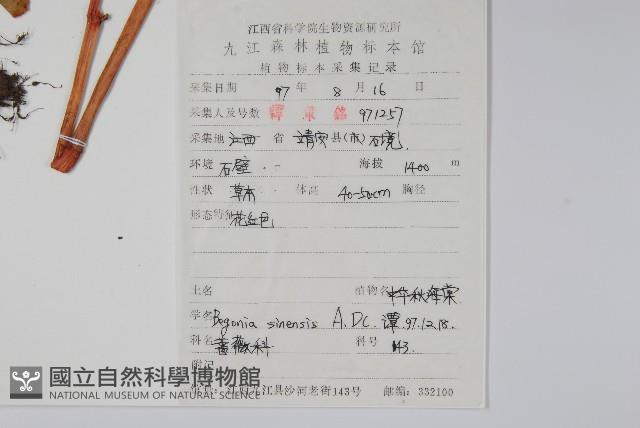 江西省科学院生物资源研究所
九江森林植物标本馆
植物标本采集记录
采集日期 97年 8月16日
采集人及号数 譚策銘 971257
采集地 江西 省 靖安 县(市) 石境
环境 石壁 海拔 1400 m
性状 草本 体高 40-50cm 胸径
形态特征 花红色
土名 植物名 中华秋海棠
学名 Begonia sinensis A.DC. 谭.97.12.18.
科名 蔷薇科 科号 143
附记
江西九江县沙河老街143号 邮编: 332100
國立自然科學博物館
NATIONAL MUSEUM OF NATURAL SCIENCE